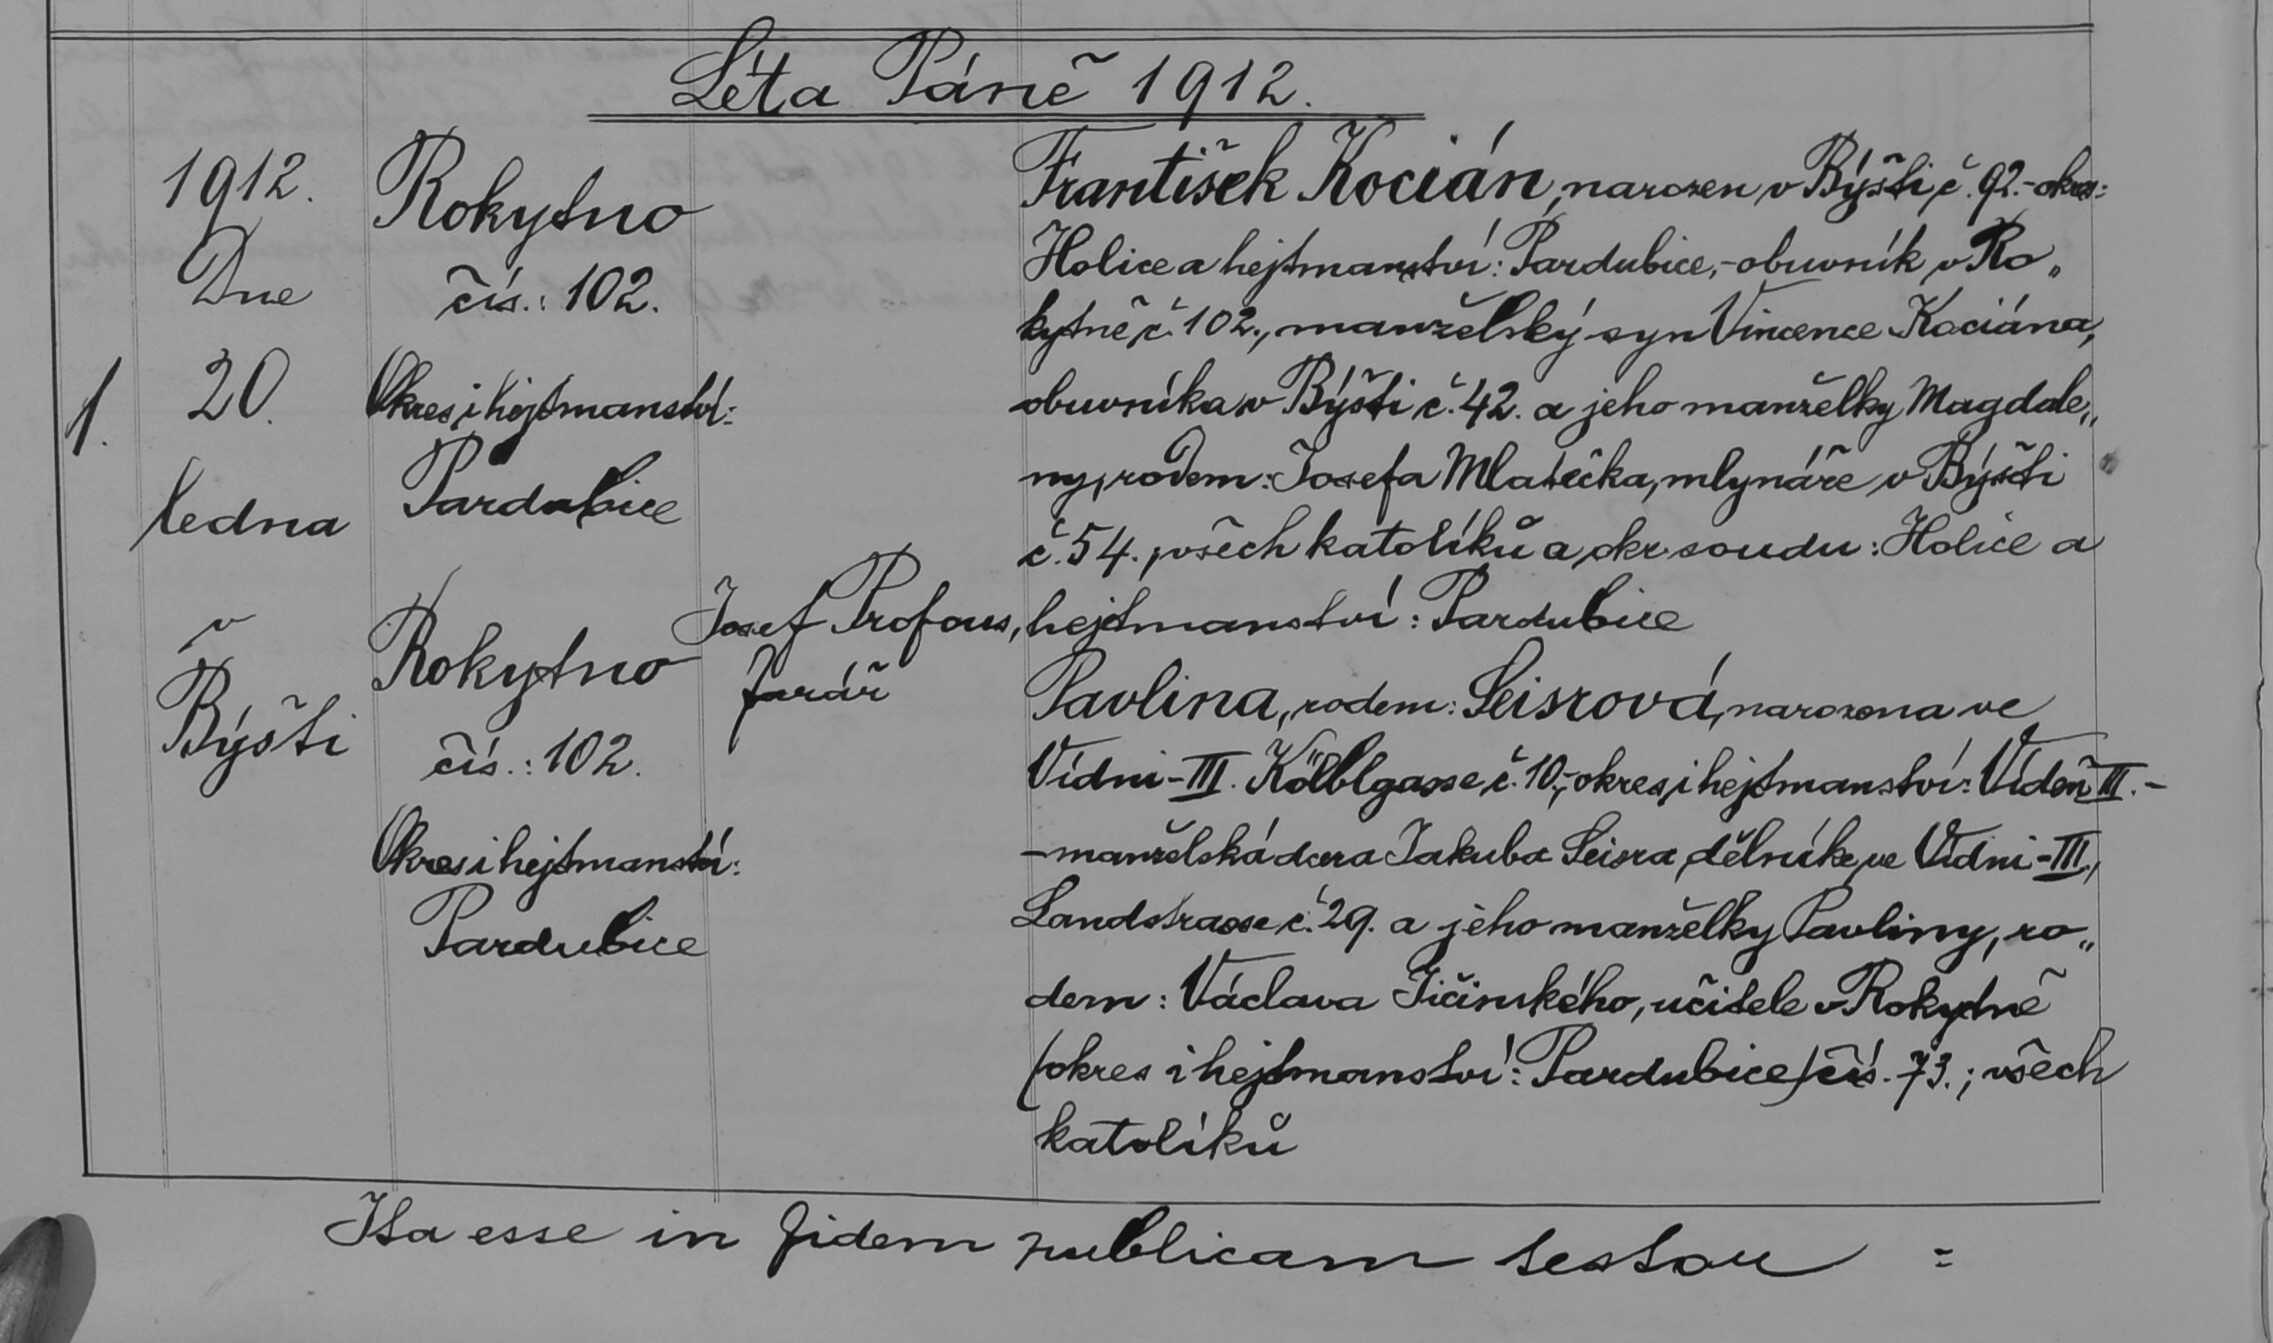 Léta Páně 1912.
1.
1912.
Dne
20.
ledna
v
Býšti
Rokytno
čís.: 102.
Okres i hejtmanství:
Pardubice
Rokytno
čís.: 102.
Okres i hejtmanství:
Pardubice
Josef Profous,
farář
František Kocián, narozen v Býšti č. 92.- okres:
Holice a hejtmanství: Pardubice,- obuvník v Ro„
kytně č. 102., manželský syn Vincence Kociána,
obuvníka v Býšti č. 42. a jeho manželky Magdale„
ny, rodem: Josefa Mlatečka, mlynáře v Býšti
č. 54., všech katolíků a okr. soudu: Holice a
hejtmanství: Pardubice
Pavlina, rodem: Leisrová, narozena ve
Vídni-III. Kölblgasse č. 10.,- okres i hejtmanství: Vídeň III.-
- manželská dcera Jakuba Leisra, dělníka ve Vídni-III.,
Landstrasse č. 29. a jeho manželky Pavliny, ro„
dem: Václava Jičinského, učitele v Rokytně
/okres i hejtmanství: Pardubice/ čís. 73.; všech
katolíků
Ita esse in fidem publicam testor =